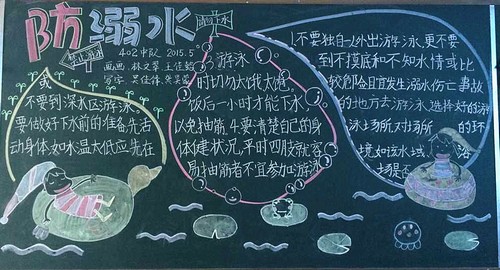 防溺水
402中队 2015.5
画画 林文翠 王佳
写字 吴佳伟
禁止游泳
请勿下水
1.不要独自一人外出游泳,更不要
到不摸底和不知水情或比
较危险且宜发生溺水伤亡事故
的地方去游泳。选择好的游
泳场所,对场所的环
境,如该水域 浴
场
2.游泳
时切勿太饿、太饱。
饭后一小时才能下水
以免抽筋。4.要清楚自己的身
体健康状况,平时四肢就容
易抽筋者不宜参加游泳
或
不要到深水区游泳。
要做好下水前的准备,先活
动身体,如水温太低应先在